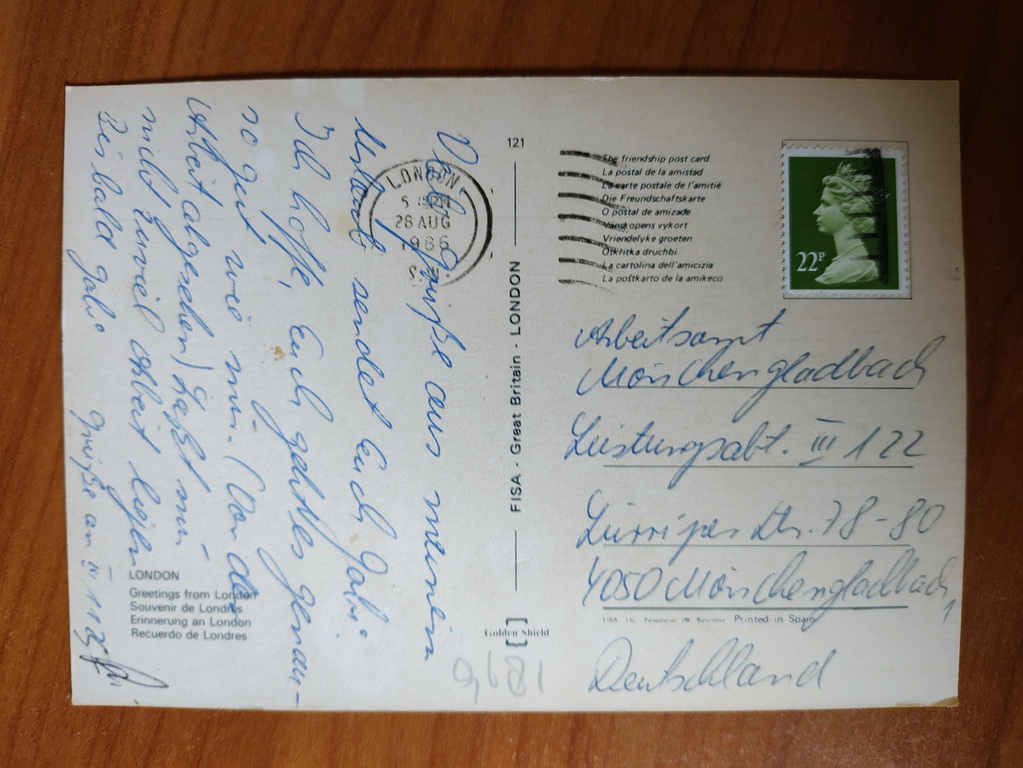 Viele Grüße aus meinem
Urlaub sendet Euch Gabi.
Ich hoffe, Euch geht es genau-
so gut wie mir. (Von der
Arbeit abgesehen) Laßt mir
nicht zuviel Arbeit liegen
Bis bald Gabi
Grüße an III 1125
LONDON
Greetings from London
Souvenir de Londres
Erinnerung an London
Recuerdo de Londres
LONDON
28 AUG
1986
121
FISA - Great Britain - LONDON
Golden Shield
The friendship post card
La postal de la amistad
La carte postale de l'amitié
Die Freundschaftskarte
O postal de amizade
Vanskopens vykort
Vriendelyke groeten
Otkritka druchbi
La cartolina dell'amicizia
La poŝtkarto de la amikeco
22P
Arbeitsamt
Mönchengladbach
Leistungsabt. III 122
Lürriper Str. 78-80
4050 Mönchengladbach 1
Printed in Spain
Deutschland